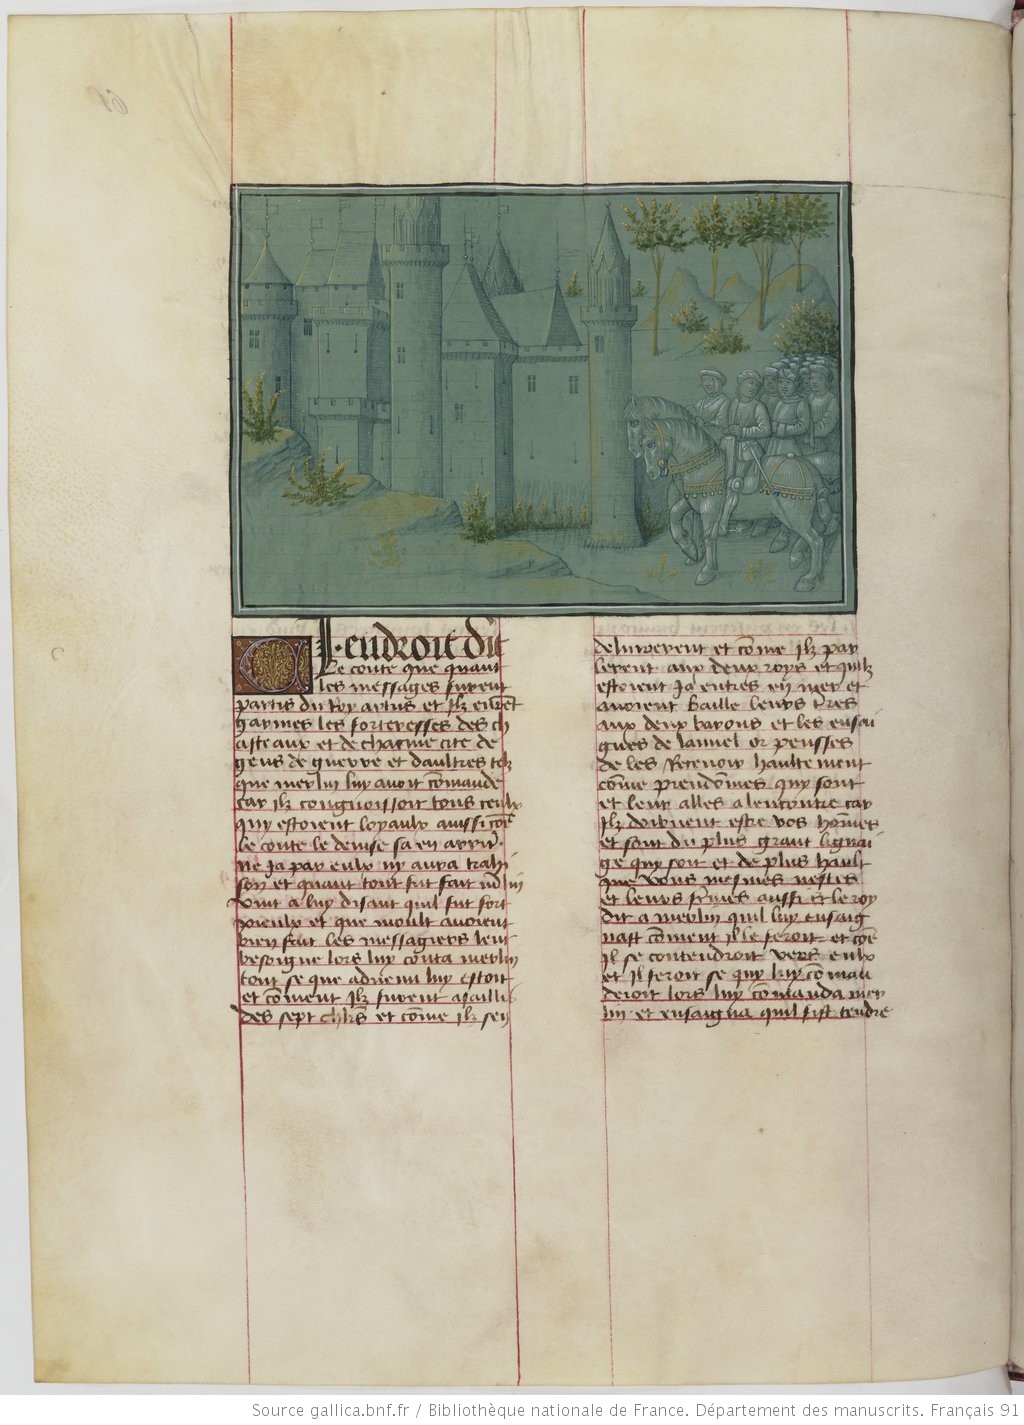 C I endroit dit
le conte que quant
les messages furent
partis du Roy artus et ilz eurēt
garnies les forteresses des ch
asteaux et de chacune cite de
gens de guerre et daultres telz
que merlin luy avoit cōmande
car ilz congnoissoit tous ceulx
quy estoient loyaulx aussi cōe
le conte le devise sa en arrire
ne Ja par eulx ny aura trahi
son et quant tout fut fait mlin
vint a luy disant quil fut fort
joieulx et que moult avoient
bien fait les messagiers leur
besoigne lors luy conta merlin
tout se que advenu luy estoit
et cōment ilz furent assaillis
des sept chlrs et cōme ilz sen
delivrerent et cōme ilz par
lerent aux deux roys et quilz
estoient Ja entres en mer et
avoient baille leurs tr̄es
aux deux barons et les ensai
gnes de lannel or pensses
de les Retenir haultement
cōme preudōmes quy sont
et leur alles alencontre car
ilz doivuent estre vos hōmes
et sont du plus grant lignai
ge quy soit et de plus hault
que vous mesmes nestes
et leurs fēmes aussi et le roy
dit a merlin quil luy ensaig
nast cōment il le feroit et cōe
il se contendroit vers eulx
et il feroit se quy luy cōman
deroit lors luy cōmanda mer
lin et ensaigna quil fist tendre
Source gallica.bnf.fr / Bibliothèque nationale de France. Département des manuscrits. Français 91